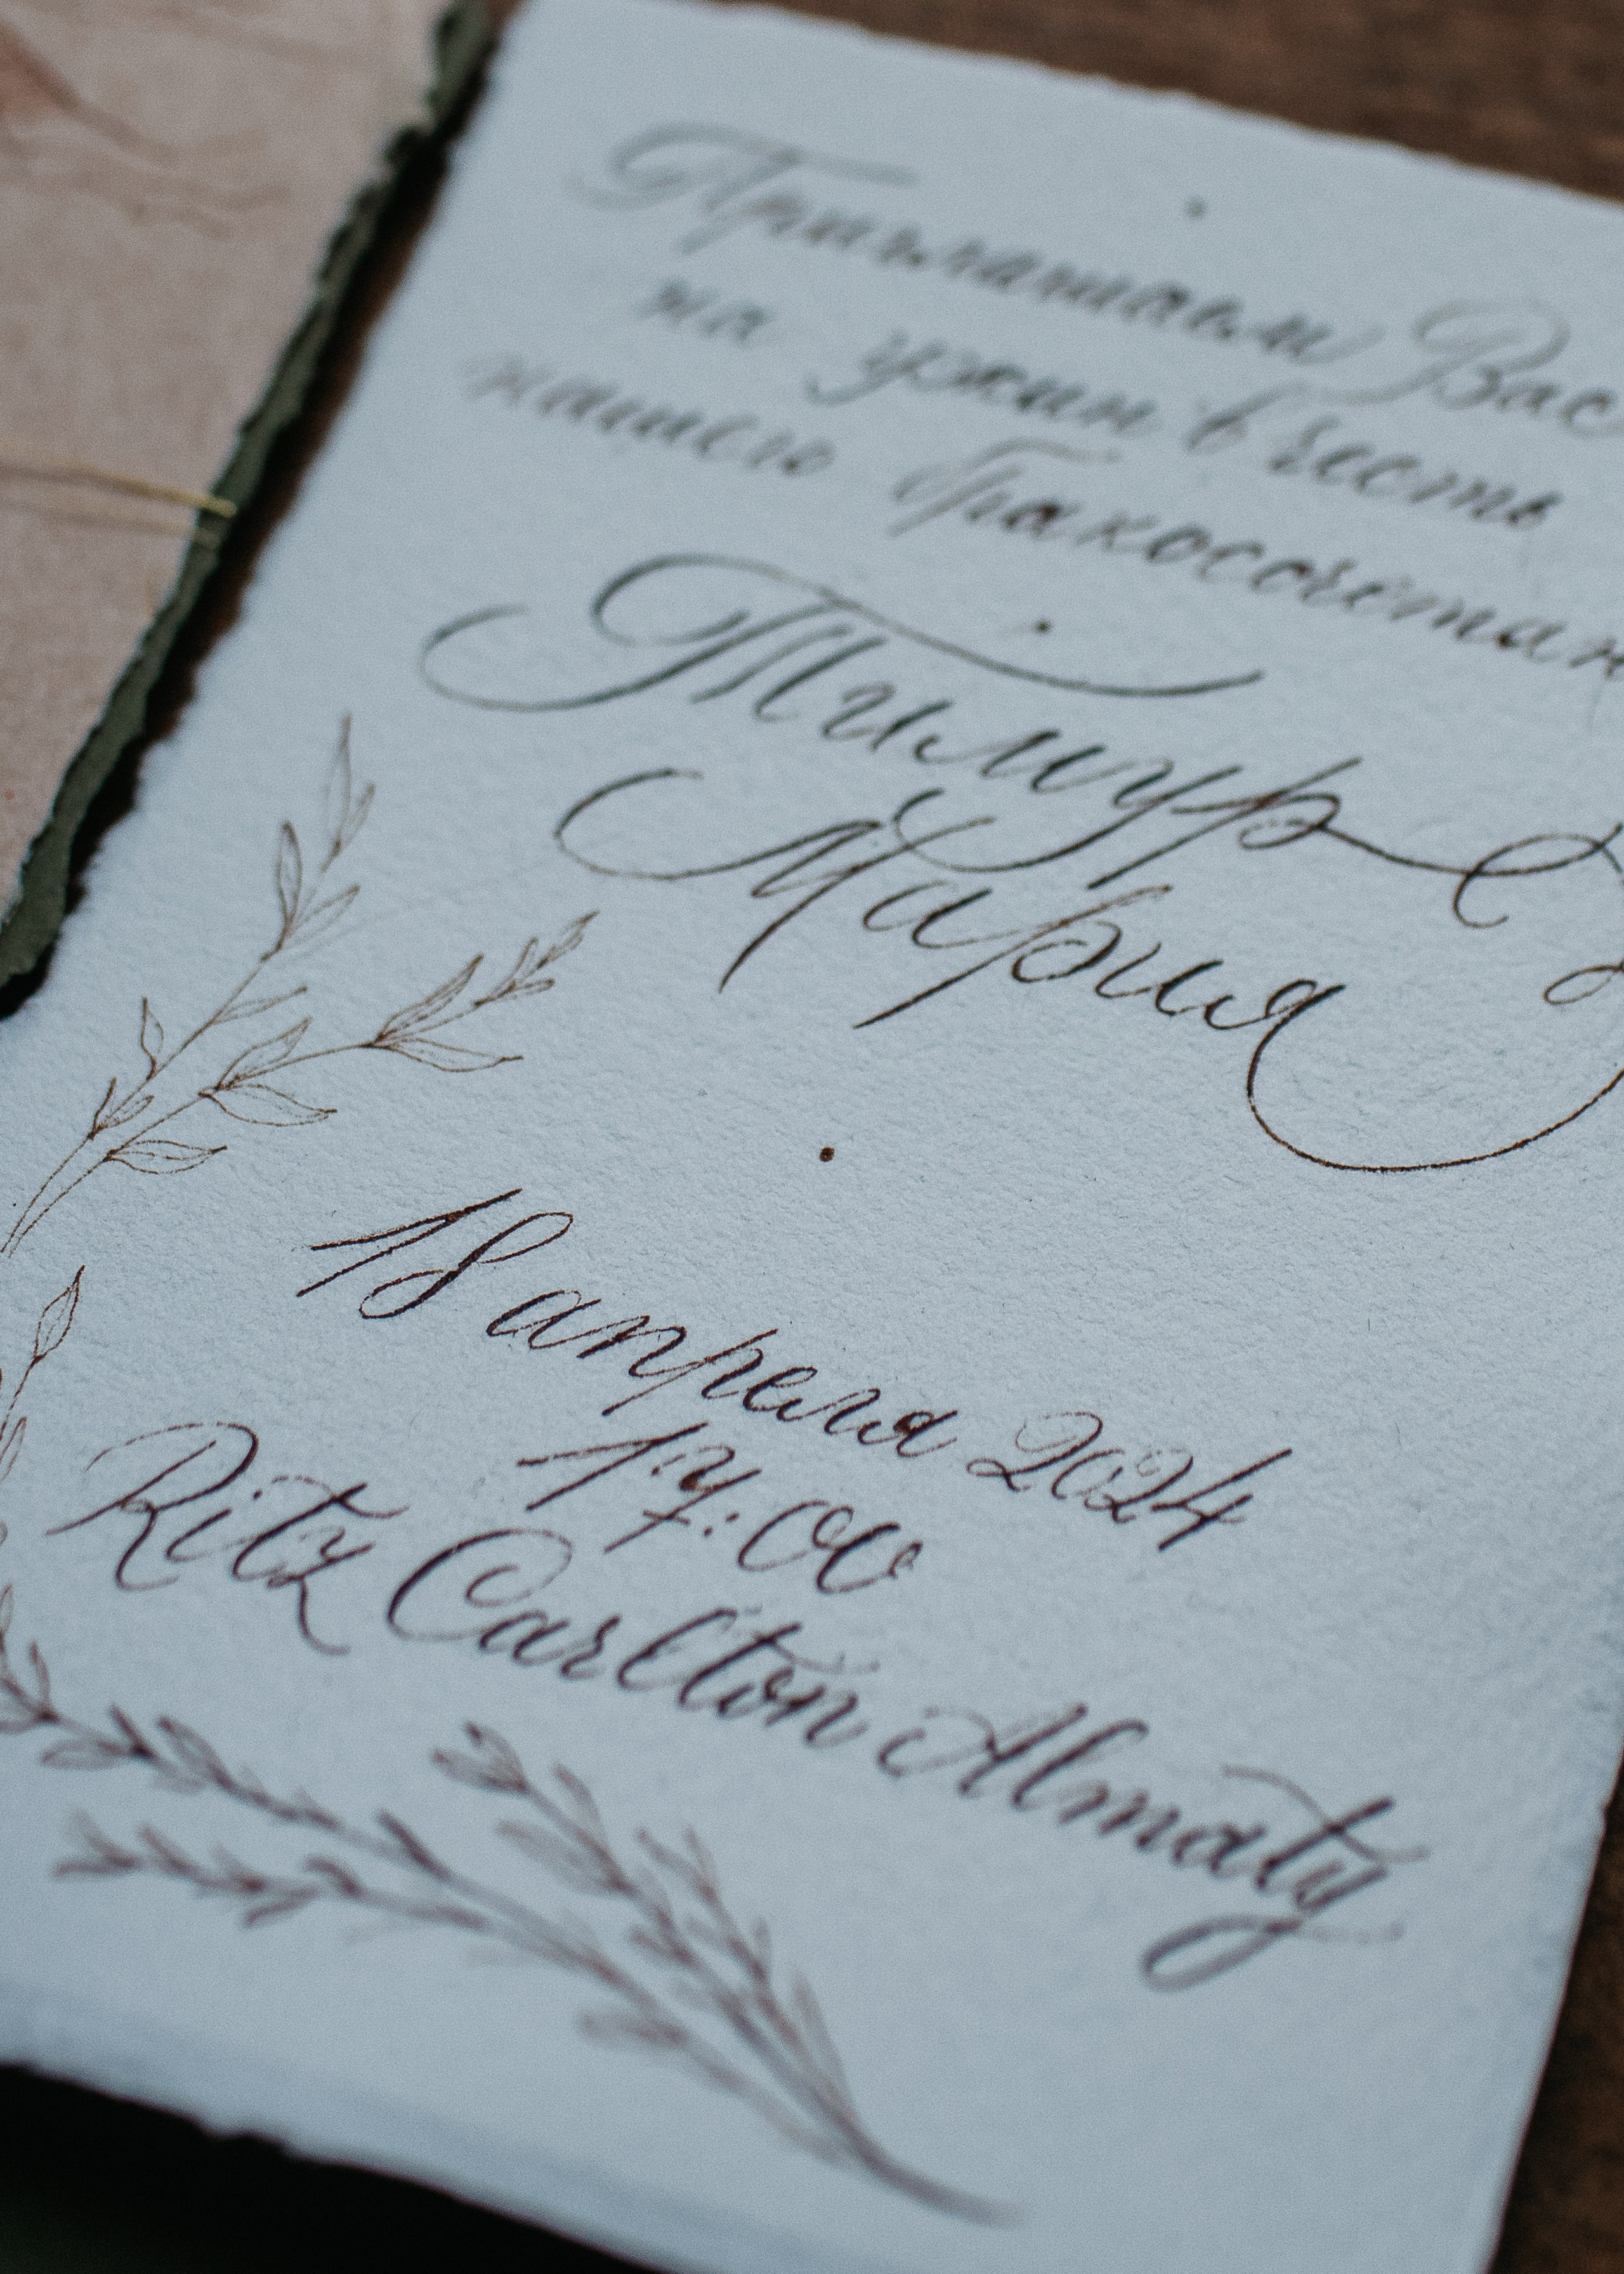 Приглашаем Вас
на ужин в честь
нашего бракосочетан
Тимур &
Мария
18 апреля 2024
17:00
Ritz Carlton Almaty